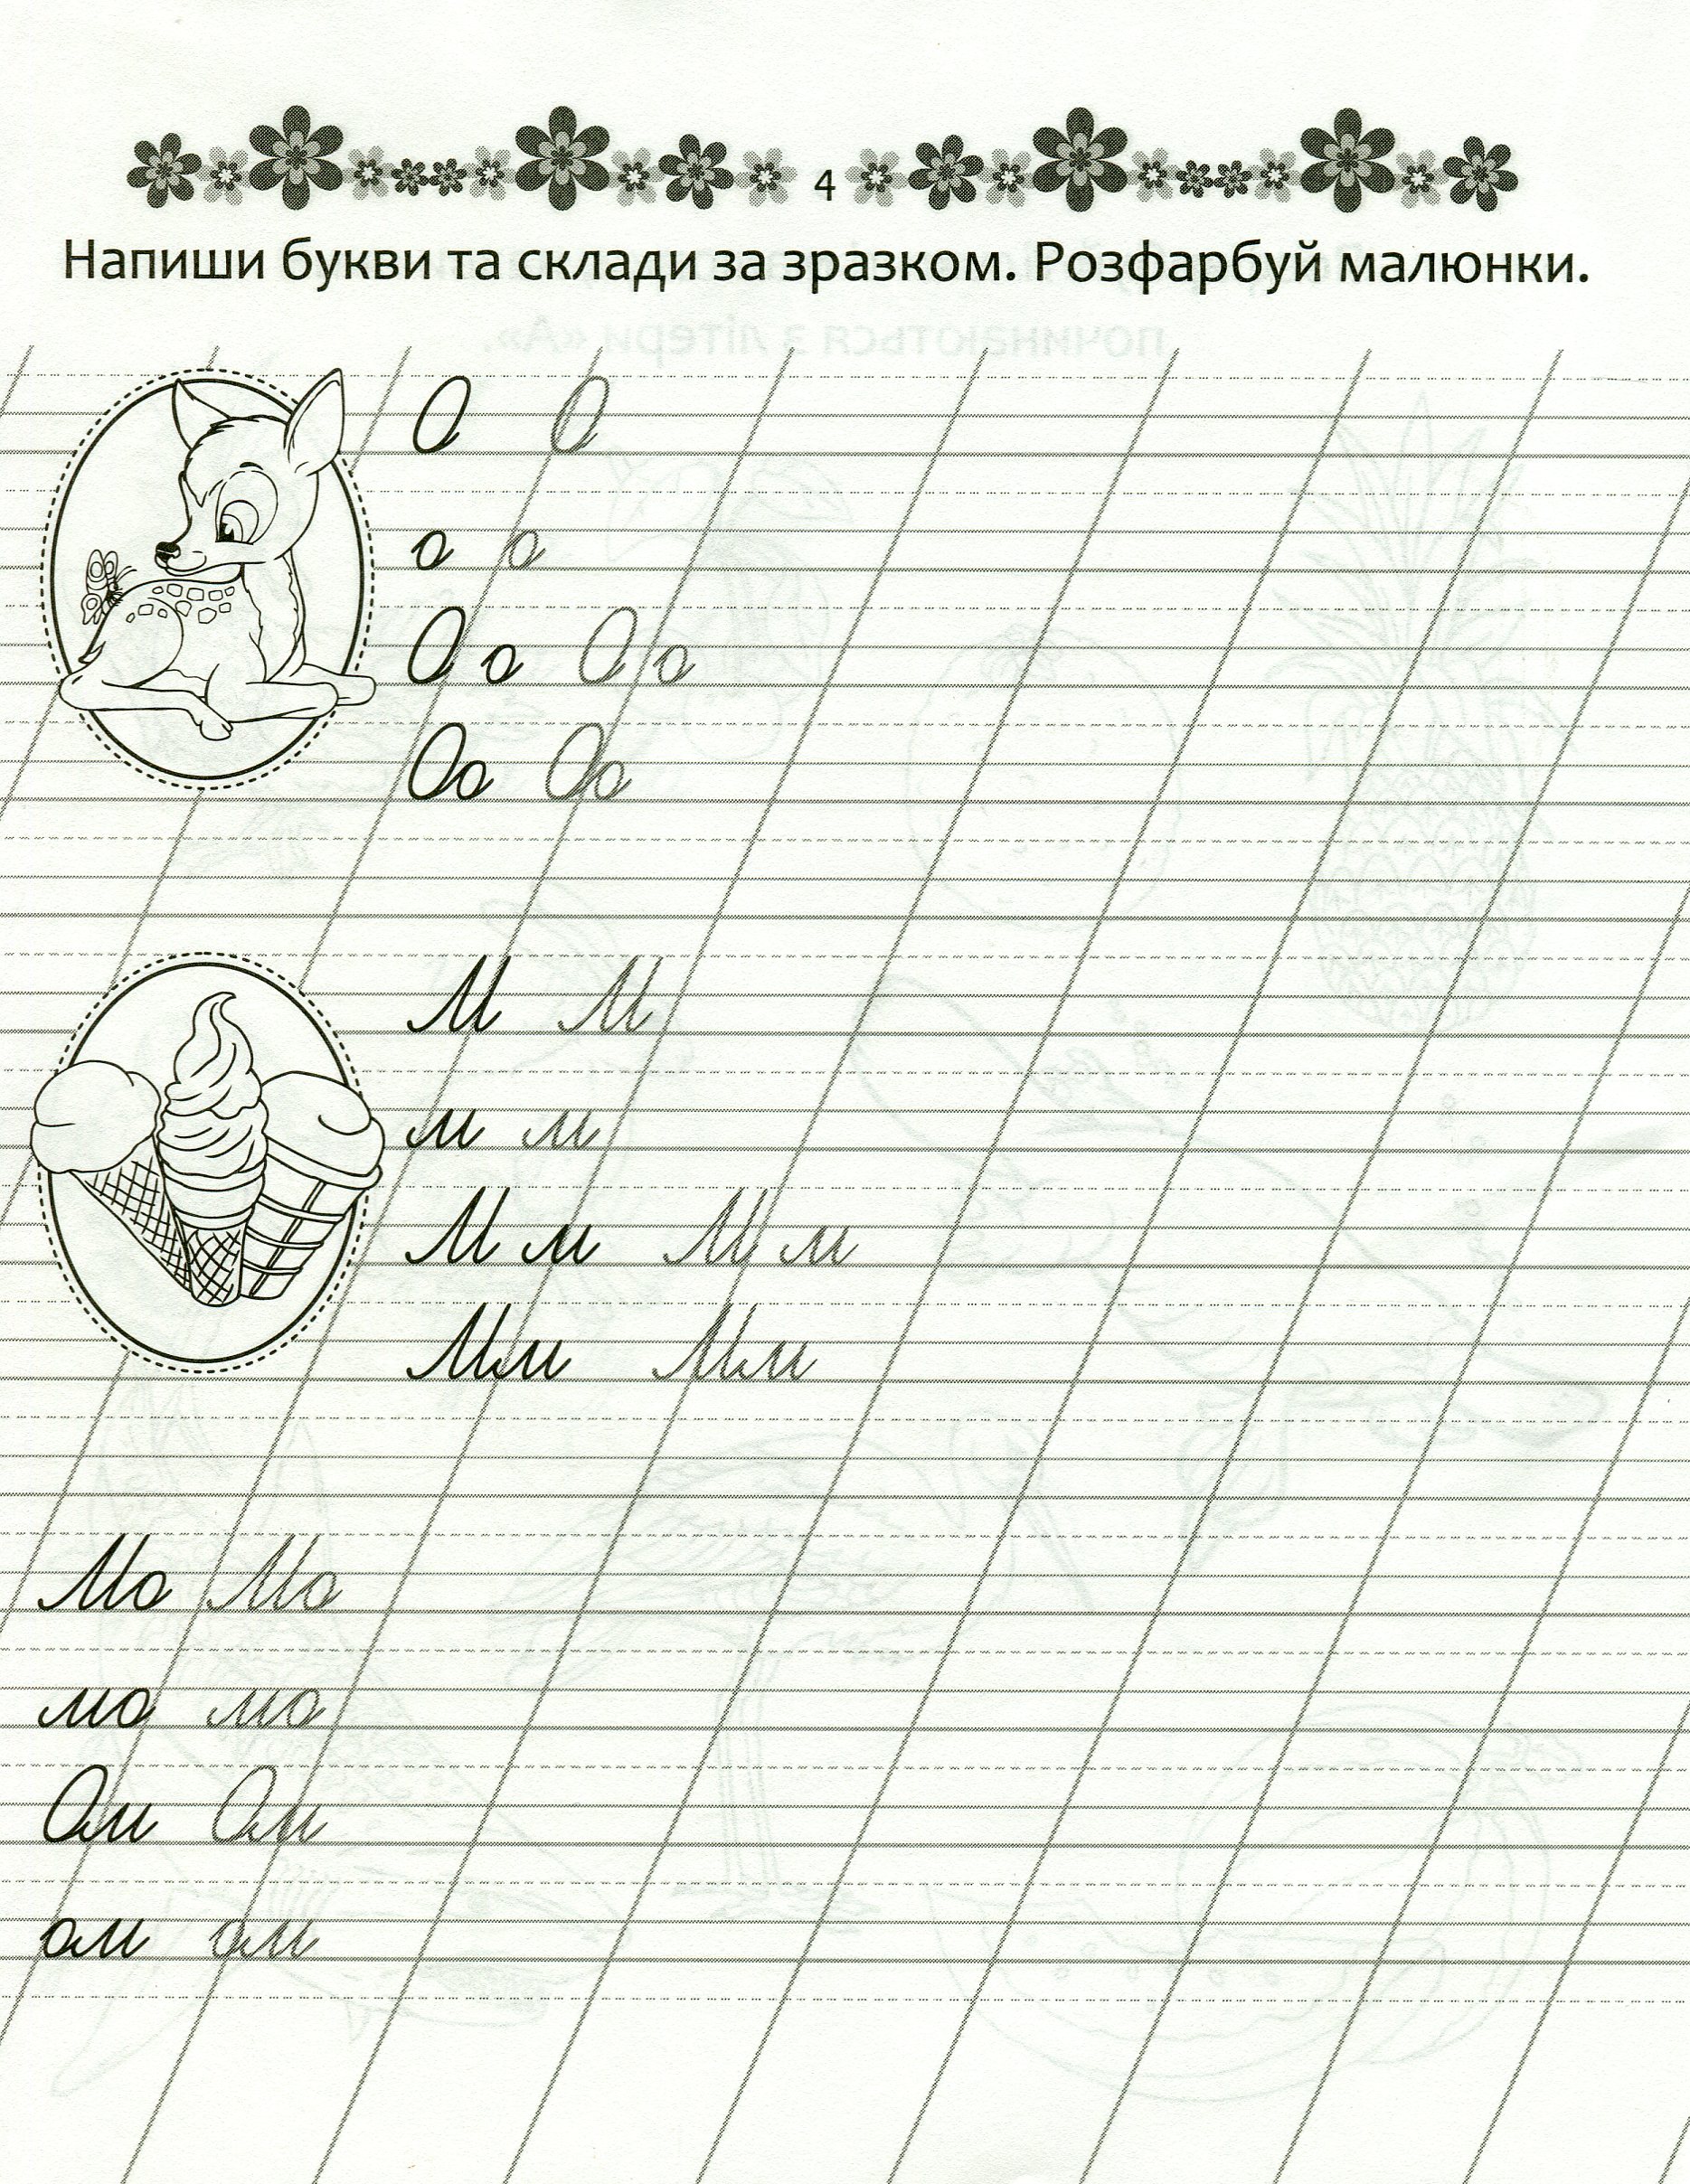 4
Напиши букви та склади за зразком. Розфарбуй малюнки.
починаються з літери «А».
О О
о о
О о О о
Оо Оо
М М
м м
М м М м
Мм Мм
Мо Мо
мо мо
Ом Ом
ом ом